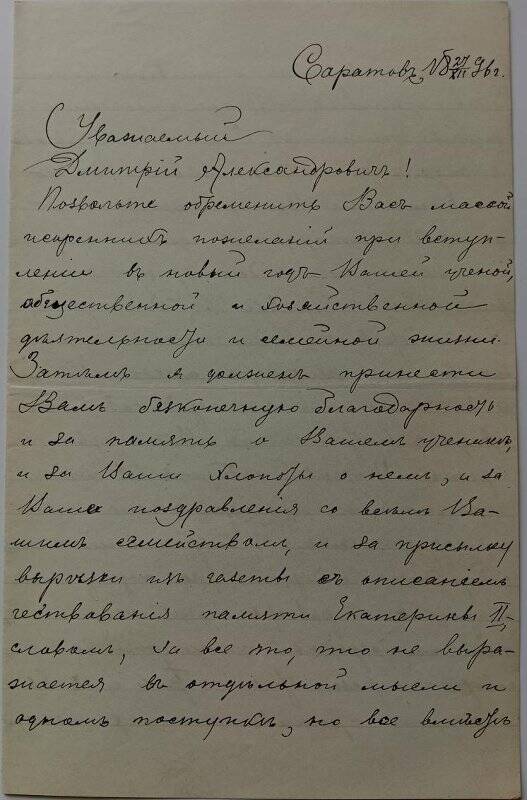 Саратовъ, 18 27/XII 96 г.
Уважаемый
Дмитрій Александровичъ!
Позвольте обременить Васъ массой
искреннихъ пожеланій при вступ-
леніи въ новый годъ Вашей ученой,
общественной и хозяйственной
дѣятельности и семейной жизни.
Затѣмъ я долженъ принести
Вамъ безконечную благодарность
и за память о Вашемъ ученикѣ,
и за Ваши хлопоты о немъ, и за
Ваше поздравленія со всѣмъ Ва-
шимъ семействомъ, и за присылку
вырѣзки изъ газеты съ описаніемъ
чествованія памяти Екатерины II,
словомъ, за все то, что не выра-
жается въ отдѣльной мысли и
одномъ поступкѣ, но все вмѣстѣ